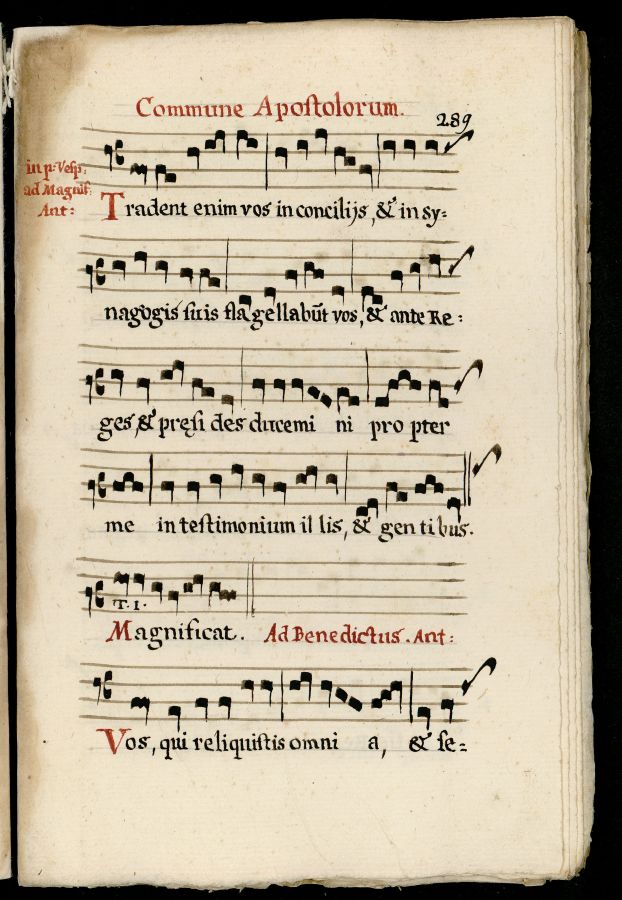 Commune Apostolorum.
289
in p: Vesp:
ad Magnif:
Ant:
Tradent enim vos in concilijs, & in sy:
nagogis suis flagellabūt vos, & ante Re:
ges, & pręsi des ducemi ni pro pter
me in testimonium il lis, & gen ti bus.
T. 1.
Magnificat. Ad Benedictus. Ant:
Vos, qui reliquistis omni a, & se: